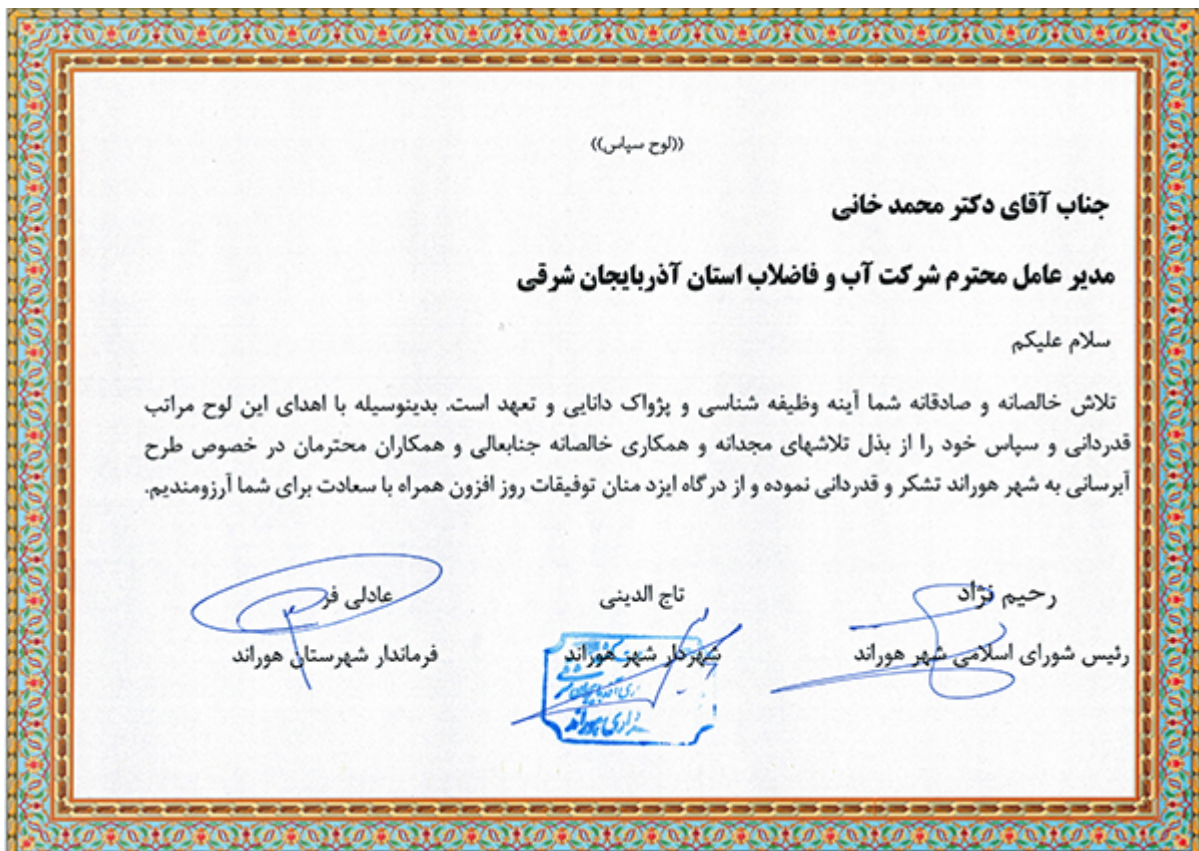 ((لوح سپاس))
جناب آقای دکتر محمد خانی
مدیر عامل محترم شرکت آب و فاضلاب استان آذربایجان شرقی
سلام علیکم
تلاش خالصانه و صادقانه شما آینه وظیفه شناسی و پژواک دانایی و تعهد است. بدینوسیله با اهدای این لوح مراتب
قدردانی و سپاس خود را از بذل تلاشهای مجدانه و همکاری خالصانه جنابعالی و همکاران محترمان در خصوص طرح
آبرسانی به شهر هوراند تشکر و قدردانی نموده و از درگاه ایزد منان توفیقات روز افزون همراه با سعادت برای شما آرزومندیم.
رحیم نژاد تاج الدینی عادلی فر
رئیس شورای اسلامی شهر هوراند شهردار شهر هوراند فرماندار شهرستان هوراند